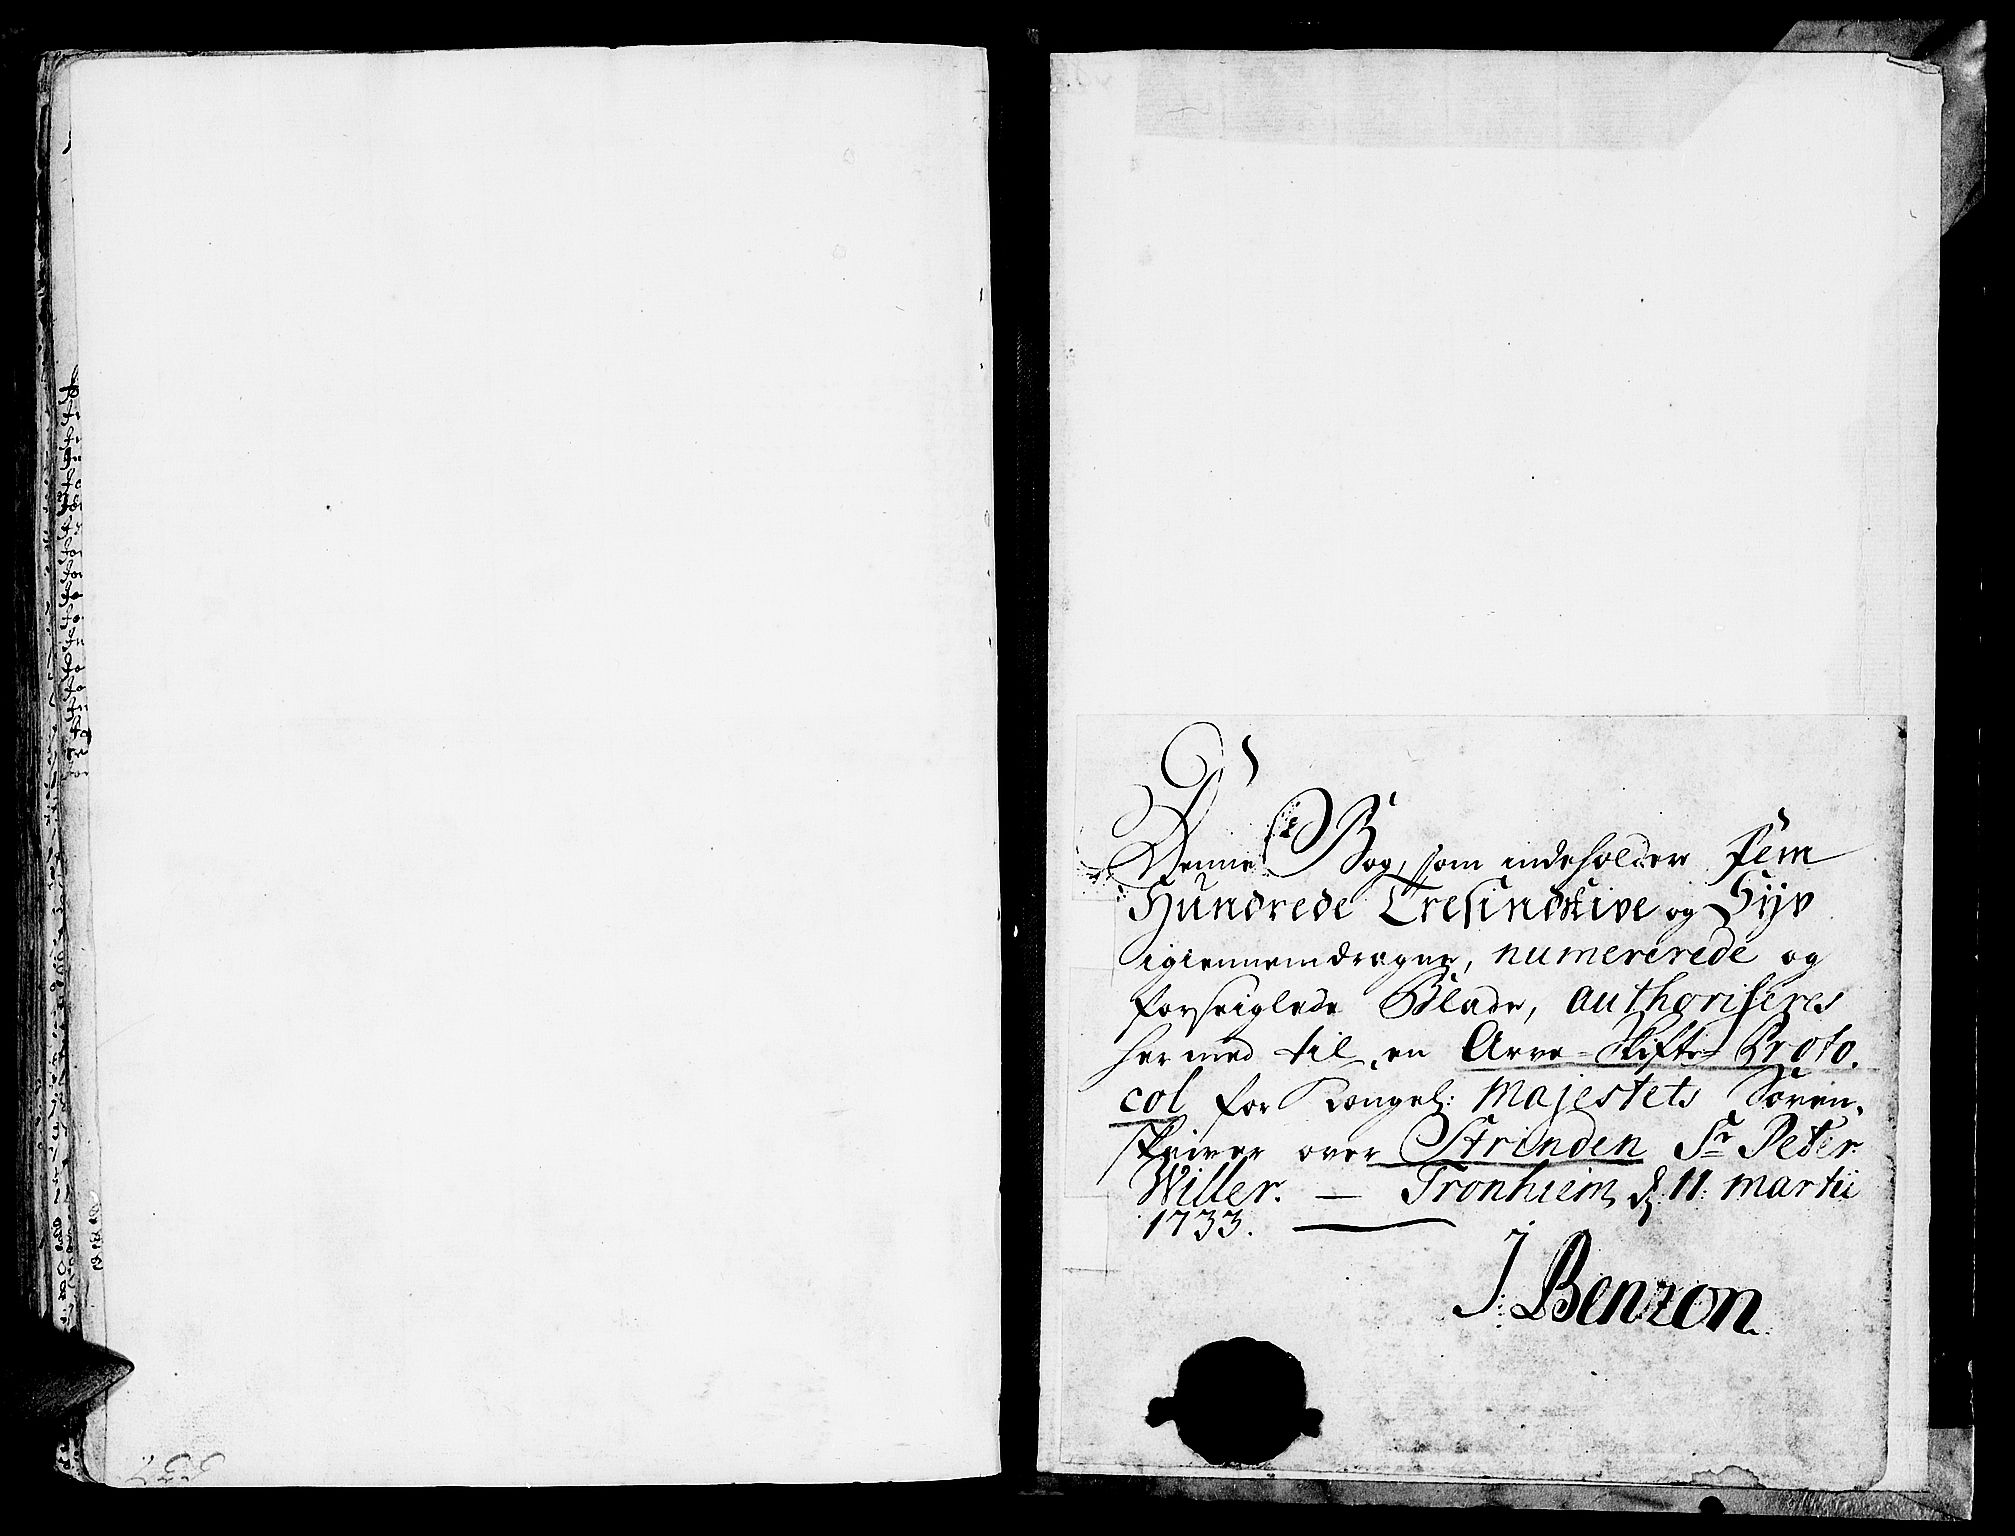 Denne Bog, som indeholder Fem
Hundrede Tresindstive og Syv
igiennemdragne, numererede og
forseiglede Blade, authoriseres
hermed til en Arve-Skifte-Proto.
col for Kongel: Majestets Soren.
skriver over Strinden Sr Peter
Willer. — Tronhiem, d. 11. martii
1733.
J. Benzon.